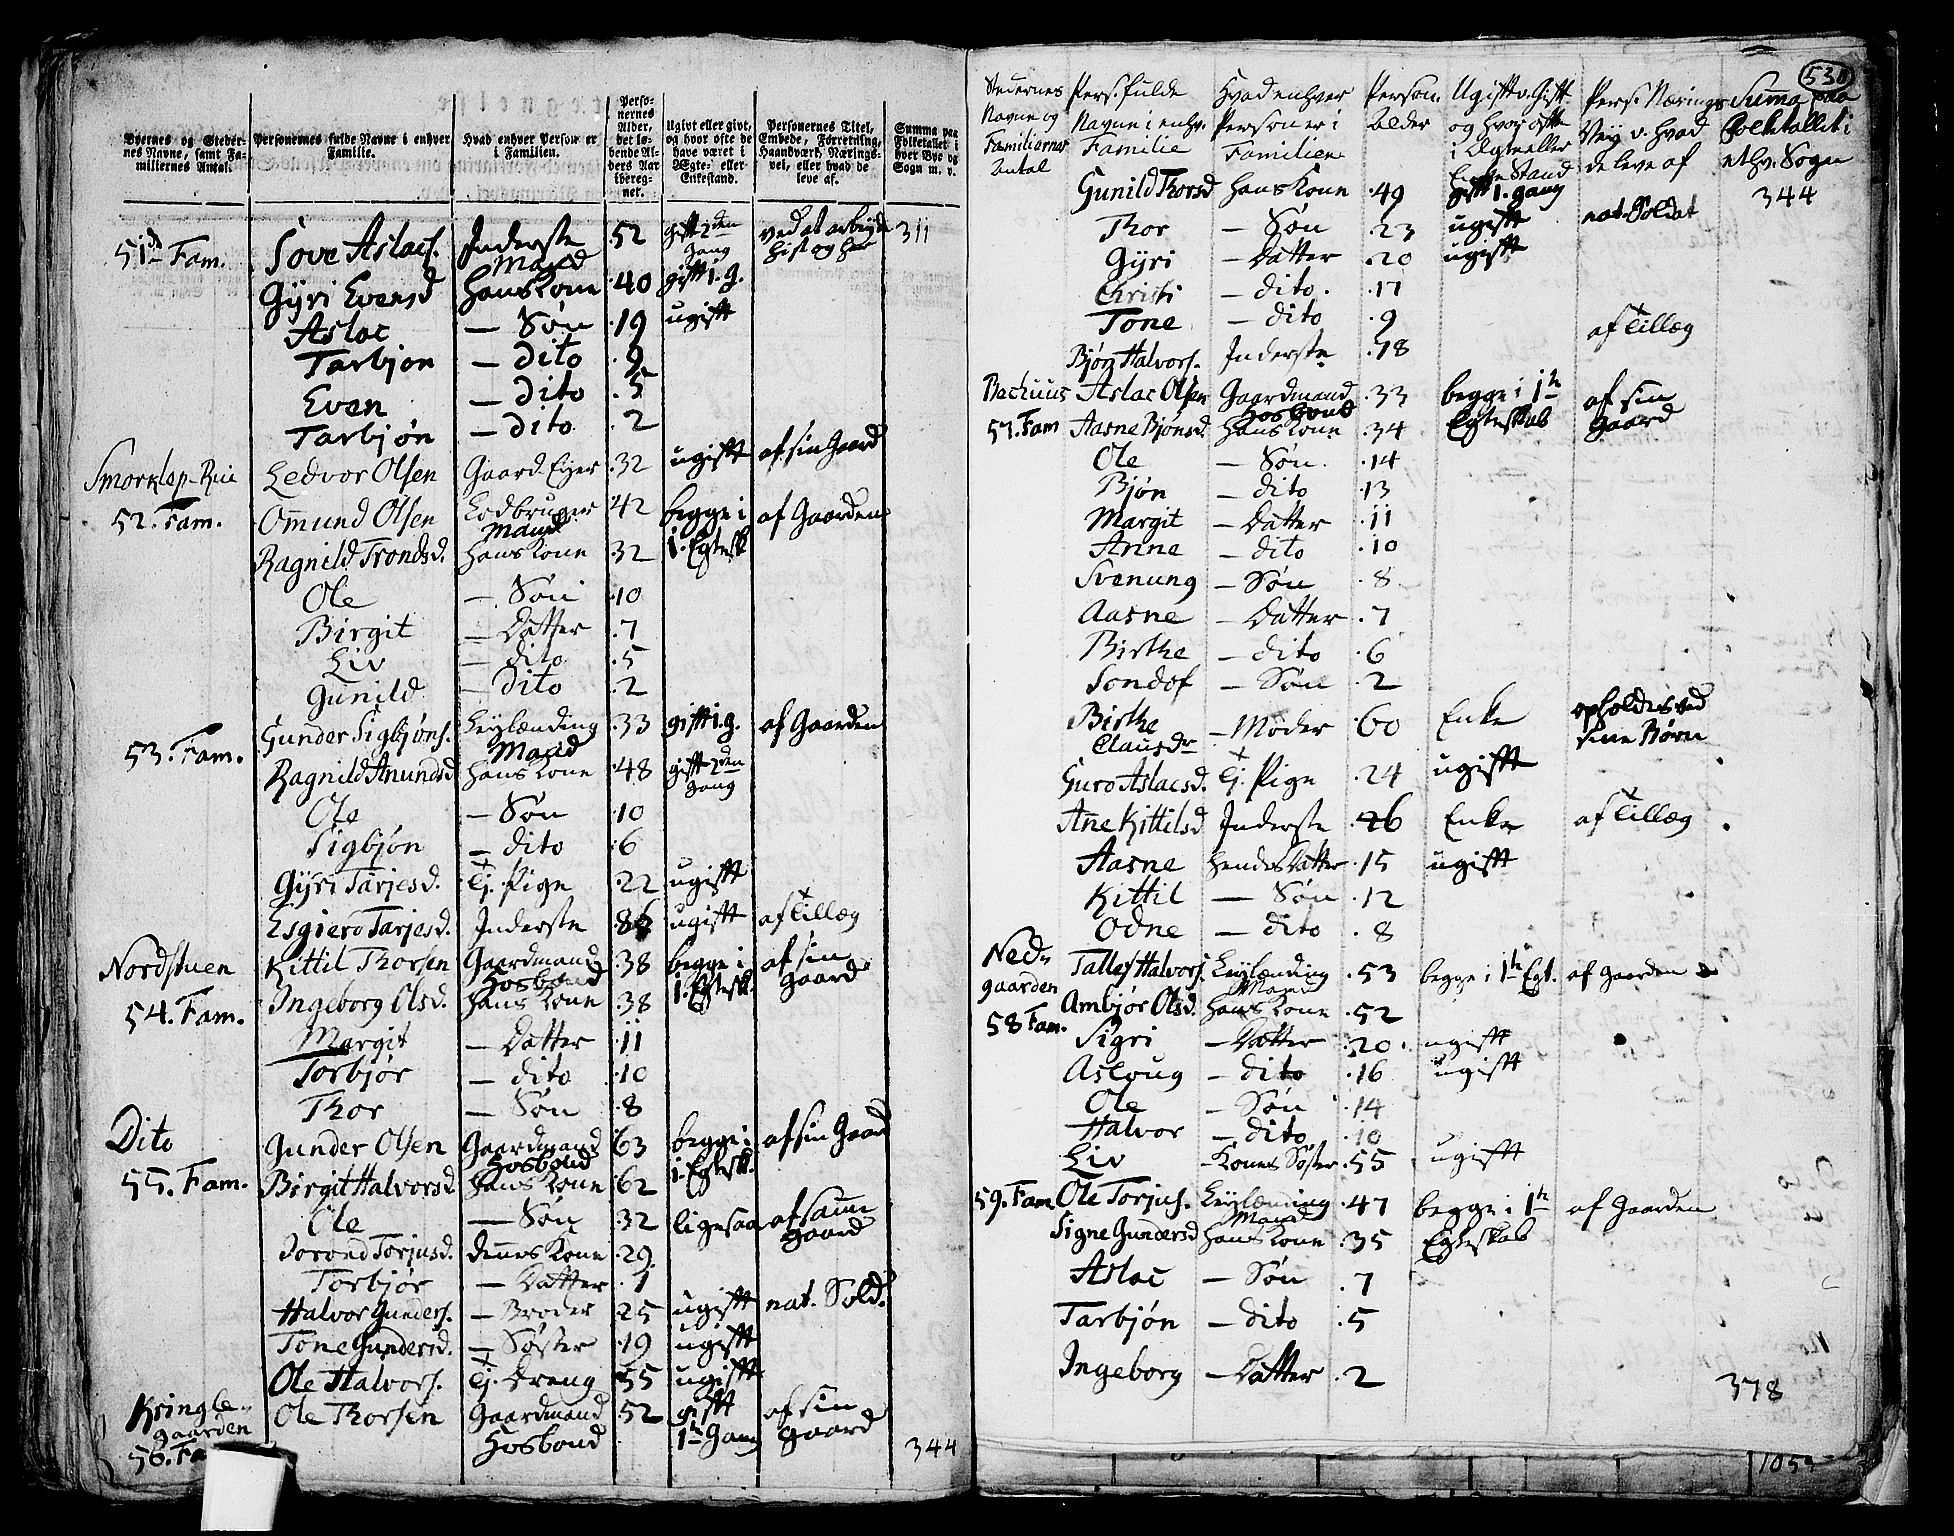 Byernes og Steder-
nes Navne, samt Fa-
miliernes Antal.
Personernes fulde Navne i enhver
Familie.
Hvad enhver Person er
i Familien.
Perso-
nernes
Alder,
det lø-
bende Al-
ders Aar
ibereg-
net.
Ugivt eller givt,
og hvor ofte de
have været i
Ægte- eller
Enkestand.
Personernes Titel,
Embede, Forretning,
Haandværk, Nærings-
vei, eller hvad de
leve af.
Summa paa
Folketallet i
hver Bye og
Sogn m. v.
51de Fam. Sove Aslacs. Inderste Mand 52 gift 2den Gang ved at arbeyde hist og her 311
Gÿri Evensd hans Kone 40 gift 1. g.
Aslac — Søn 19 ugift
Tarbjøn — dito 9
Even — dito 5
Tarbjøn — dito 2
Smorklep-Rue Ledvor Olsen Gaard Eyer 32 ugift af sin Gaard
52. Fam. Omund Olsen Lodbruger Mand 42 begge i af Gaarden
Ragnild Trondsd. hans Kone 32 1. Egtesk
Ole — Søn 10
Birgit — Datter 7
Liv — dito 5
Gunild — dito 2
53. Fam. Gunder Sigbjøns. Leylænding Mand 33 gift 1. g. af Gaarden
Ragnild Anundsd hans Kone 48 gift 2den Gang
Ole — Søn 10
Sigbjøn — dito 6
Gÿri Tarjesd. tj. Pige 22 ugift
Esgierd Tarjesd. Inderste 86 ugift af tillæg
Nordstuen Kittil Thorsen Gaardmand Hosbond 38 begge i af sin Gaard
54. Fam. Ingeborg Olsd. hans Kone 38 1. Egtesk.
Margit — Datter 11
Torbjør — dito 10
Thor — Søn 8
Dito Gunder Olsen Gaardmand Hosbond 63 begge i af sin Gaard
55. Fam. Birgit Halvorsd hans Kone 62 1. Egtesk.
Ole — Søn 32 ligesaa af samme Gaard
Jorond Torjusd. dennes Kone 29
Torbjør — Datter 1
Halvor Gunders. — Broder 25 ugift nat. Sold.
Tone Gundersd. — Søster 19 ugift
Ole Halvors. tj. Dreng 55 ugift
Kringle-gaarden Ole Thorsen Gaardmand 52 gift af sin
56. Fa Hosbond 1te Gang Gaard 344
530
Stedernes
Navne og
Familiernes
Antal
Pers. fulde
Navne i enhv.
Familie
Hvad enhver
Person er i
Familien
Person.
Alder
Ugift v. Gift
og hvor ofte
i Ægte eller
Enke Stand
Pers. Nærings
Veiy v. hvad
de leve af
Summa paa
Folketallet i
ethv. Sogn
Gunild Thorsd hans Kone 49 gift 1. gang 344
Thor — Søn 23 ugift nat. Soldat
Gÿri — Datter 20 ugift
Christi — dito 17
Tone — dito 9
Bjøn Halvors. Inderste 78 af tillæg
Bachuus Aslac Olsen Gaardmand Hosbond 33 begge i 1te af sin
57. Fam Aasne Bjønsd. hans Kone 34 Egteskab Gaard
Ole — Søn 14
Bjøn — dito 13
Margit — Datter 11
Anne — dito 10
Svenung — Søn 8
Aasne — Datter 7
Birthe — dito 6
Sondof — Søn 2
Birthe Clausdr — Moder 60 Enke opholdes ved sine Børn
Guro Aslacsd. tj. Pige 24 ugift
Ane Kittilsd Inderste 46 Enke af tillæg
Aasne hendes Datter 15 ugift
Kittil — Søn 12
Odne — dito 8
Ned-gaarden Tallef Halvors. Leylænding Mand 53 begge i 1te Egt. af Gaarden
58 Fam. Ambjør Olsd. hans Kone 52
Sigri — Datter 20 ugift
Asloug — dito 16 ugift
Ole — Søn 14
Halvor — dito 10
Liv — Kones Søster 55 ugift
59. Fam Ole Torjus. Leylænding Mand 47 begge i 1te af Gaarden
Signe Gundersd hans Kone 35 Egteskab
Aslac — Søn 7
Tarbjøn — dito 5
Ingeborg — Datter 2
378